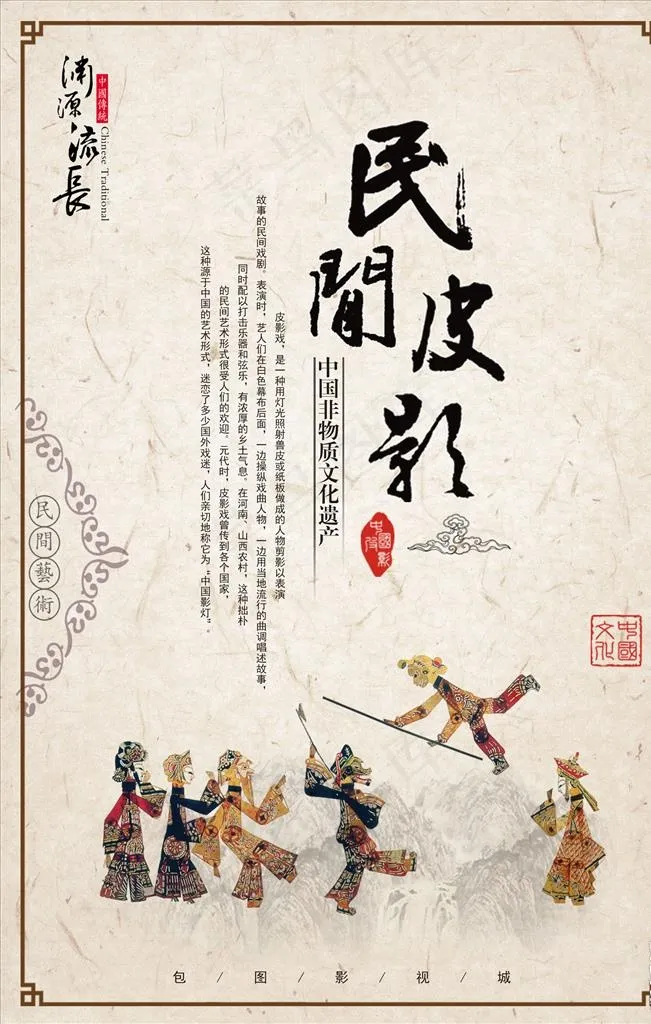 渊源流長
中國傳統
Chinese Traditional
民間
皮影
中国非物质文化遗产
中國皮影
皮影戏，是一种用灯光照射兽皮或纸板做成的人物剪影以表演
故事的民间戏剧。表演时，艺人们在白色幕布后面，一边操纵戏曲人物，一边用当地流行的曲调唱述故事，
同时配以打击乐器和弦乐，有浓厚的乡土气息。在河南、山西农村，这种拙朴
的民间艺术形式很受人们的欢迎。元代时，皮影戏曾传到各个国家，
这种源于中国的艺术形式，迷恋了多少国外戏迷，人们亲切地称它为“中国影灯”。
民間藝術
中國文化
包/图/影/视/城